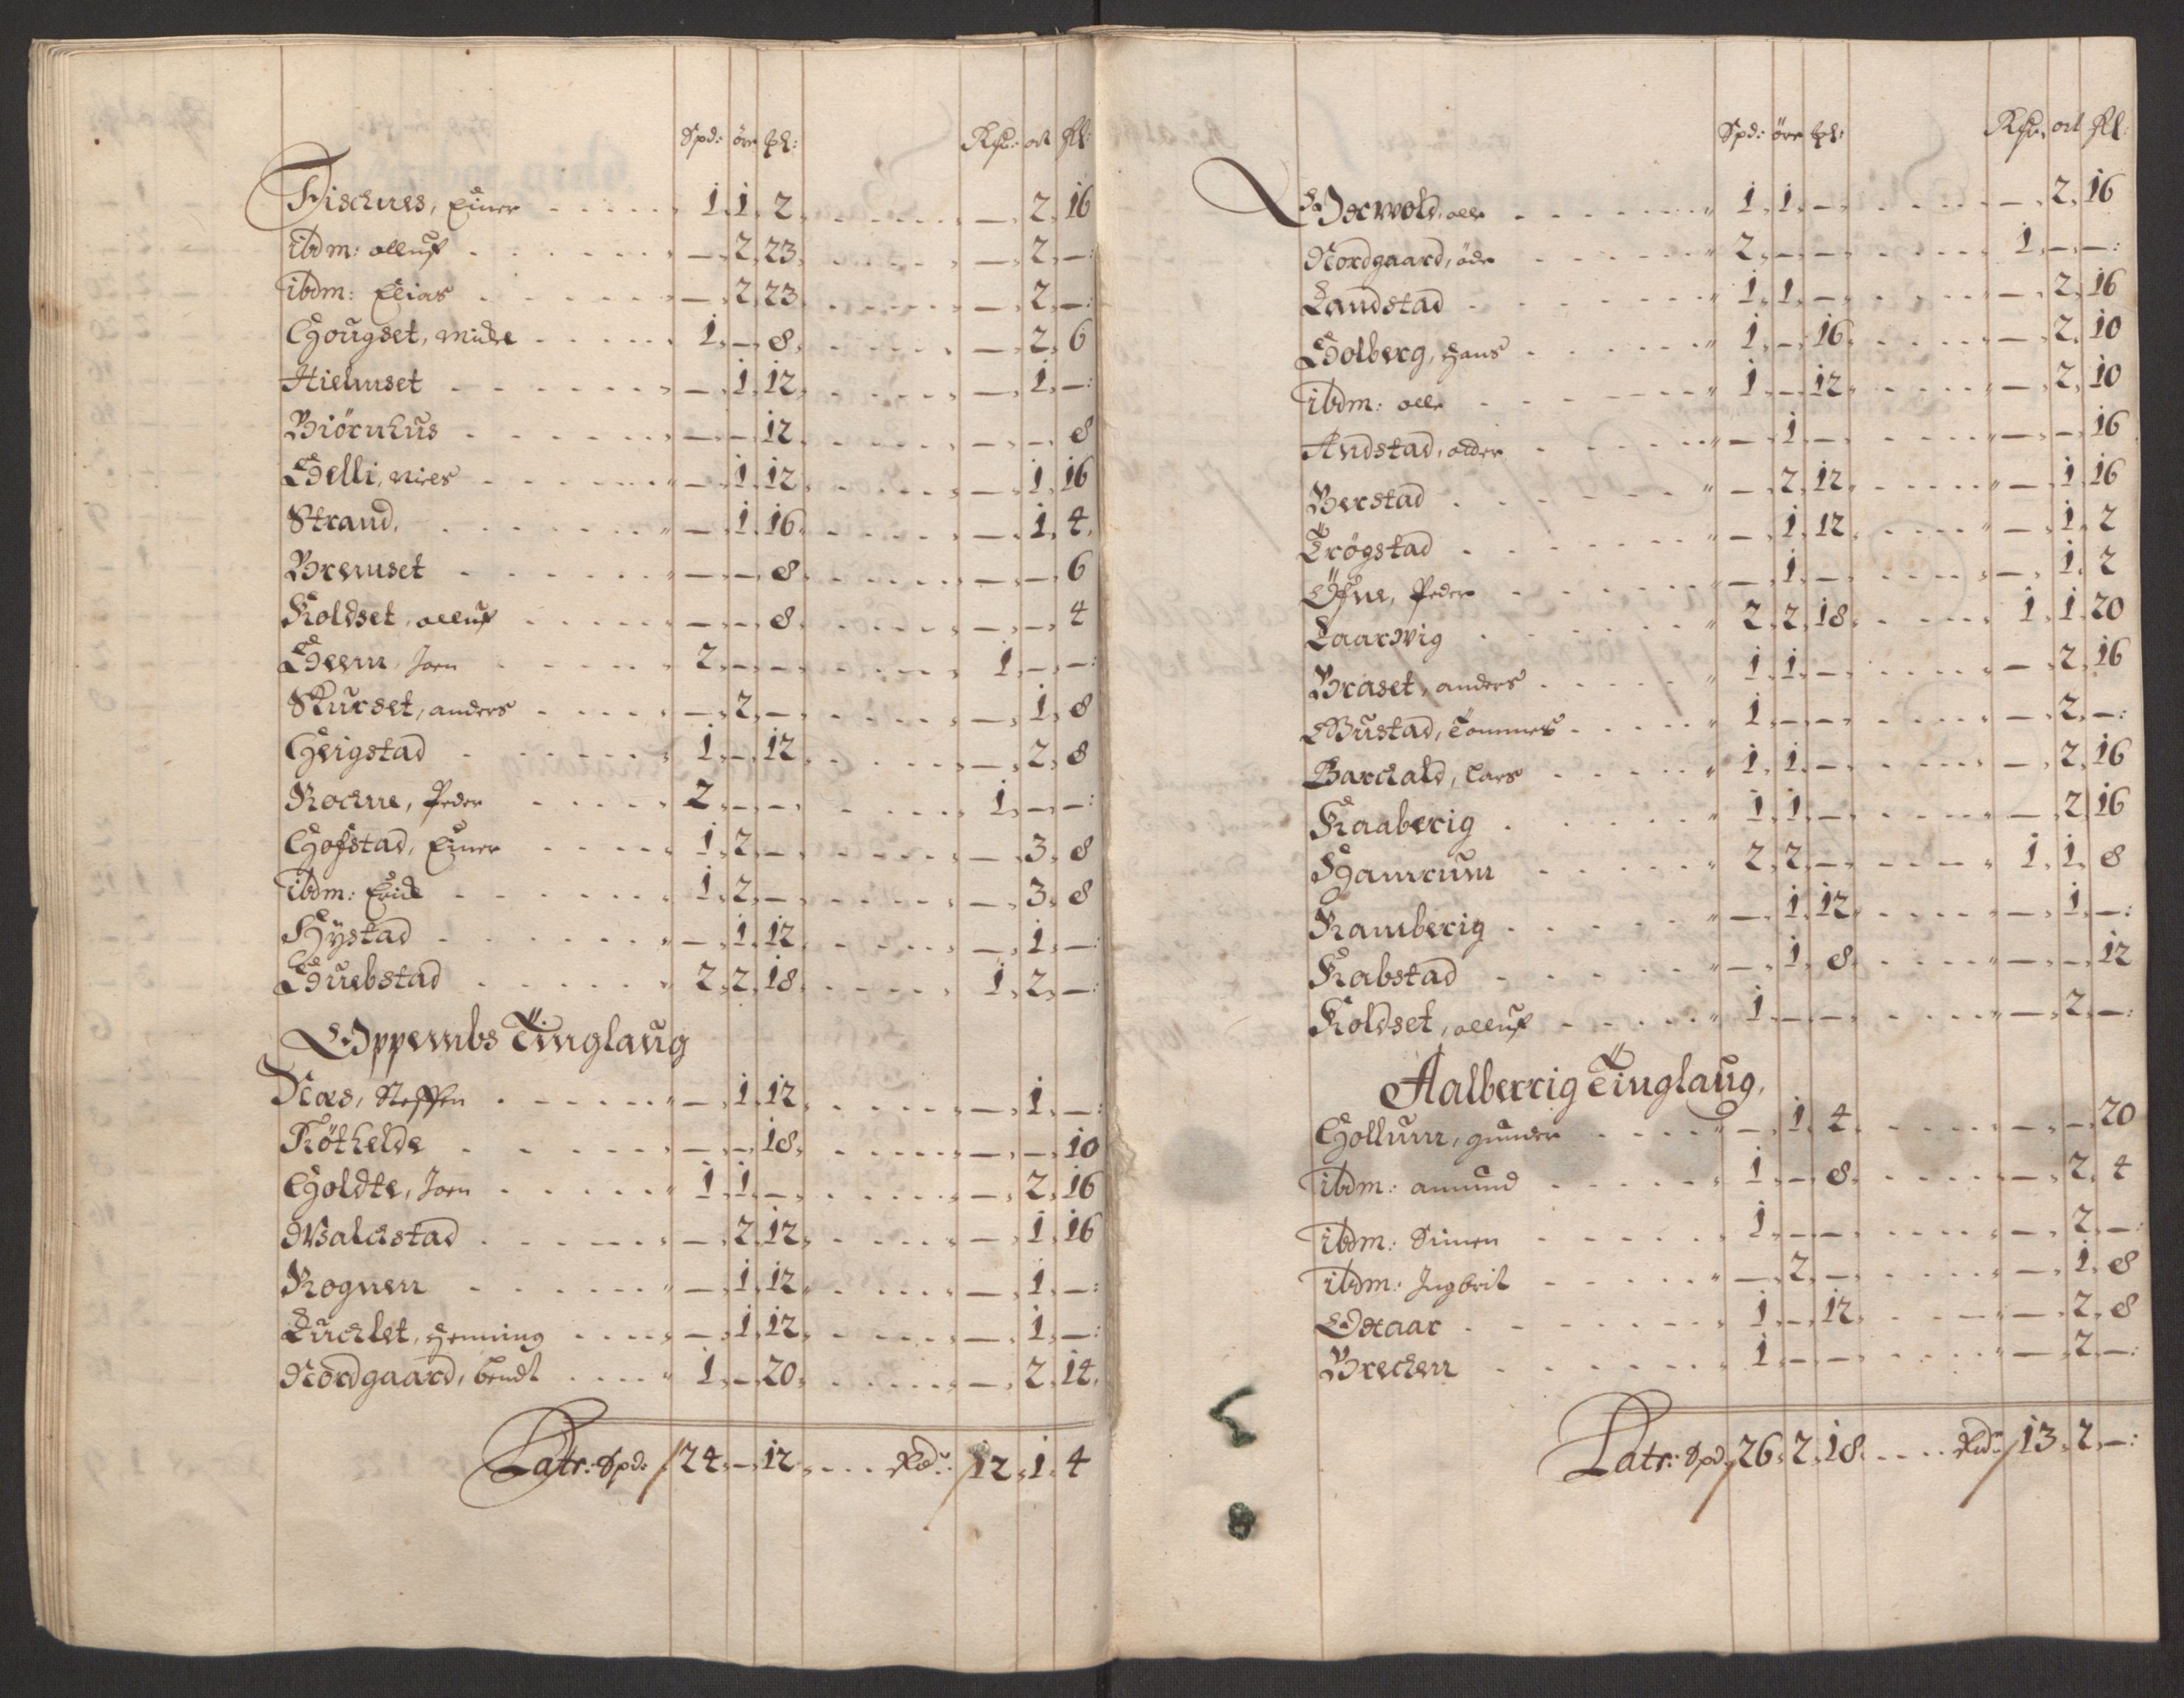 Spd: öre ₰l: Rß: ort ₰l:
Fischnes, Einer 1. 1. 2. — 2. 16
ibdm: olluf — 2. 23. — 2. —:
ibdm: Elias — 2. 23. — 2. —:
Hougset, 1. — 8. — 2. 6
Hielmset — 1. 12. — 1. —:
Biörnhus — — 12. — — 8
Helli, Niels — 1. 12. — 1. 16
Strand, — 1. 16. — 1. 4.
Bremset — — 8. — — 6
Koldset, olluf — — 8. — — 4
Heem, Joen 2. — — 1. — —:
Skurset, anders — 2. — — 1. 8
Heigstad 1. — 12. — 2. 8
Rochne, Peder 2. — — 1. — —:
Hofstad, Einer 1. 2. — — 3. 8
ibdm: Erich 1. 2. — — 3. 8
Hÿstad — 1. 12. — 1. —:
Guebstad 2. 2. 18. 1. 2. —:
Oppembs Tinglaug
Næs, Steffen — 1. 12. — 1. —:
Röthelde — — 18. — — 10
Holdte, Joen 1. 1. — — 2. 16
Walchstad — 2. 12. — 1. 16
Rognen — 1. 12. — 1. —:
henning — 1. 12. — 1. —:
Nordgaard, bendt 1. — 20. — 2. 14.
Latr: Spd: 24. — 12. Rd: 12. 1. 4
Spd: öre ₰l: Rß: ort ₰l:
olle 1. 1. — — 2. 16
Nordgaard, öde 2. — — 1. — —:
Landstad 1. 1. — — 2. 16
Solberg, Hans 1. — 16. — 2. 10
ibdm: olle 1. — 12. — 2. 10
Andstad, — 1. — — — 16
Berstad — 2. 12. — 1. 16
Trögstad — 1. 12. — 1. 2
Öfne, Peder — 1. — — 1. 2
Laarwig 2. 2. 18. 1. 1. 20
Braset, anders 1. 1. — — 2. 16
Bustad, Tommes 1. — — — 2. —:
Barchald, Lars 1. 1. — — 2. 16
Raaberig 1. 1. — — 2. 16
Hamrum 2. 2. — 1. 1. 8
Ramberig — 1. 12. — 1. —:
Rabstad — 1. 8. — — 12
Koldset, olluf 1. — — — 2. —:
Aalberrig Tinglaug,
Hollum, gunder — 1. 4. — — 20
ibdm: amund 1. — 8. — 2. 4
ibdm: Simen 1. — — — 2. —:
ibdm: Ingbrit — 2. — — 1. 8
1. — 12. — 2. 8
Brechen 1. — — — 2. —:
Latr: Spd: 26. 2. 18. Rd: 13. 2. —: